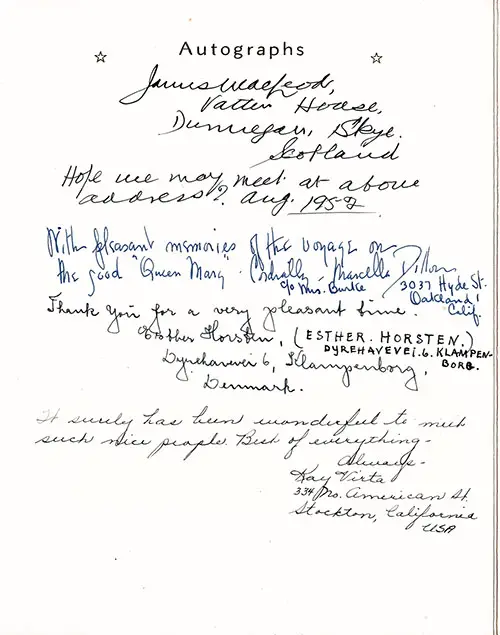 Autographs
James MacLeod,
Vatten House,
Dunvegan, Skye.
Scotland
Hope we may meet at above
address? Aug. 1952
With pleasant memories of the voyage on
the good "Queen Mary". Cordially - Marcella Dillon
c/o Mrs. Burke
3037 Hyde St.
Oakland 1
Calif.
Thank you for a very pleasant time.
Esther Horsten, (ESTHER. HORSTEN.)
DYREHAVEVEJ. 6. KLAMPEN-
BORG.
Dyrehavevej 6, Klampenborg,
Denmark.
It surely has been wonderful to meet
such nice people. Best of everything -
Always -
Kay Virta
334 No. American St.
Stockton, California
USA